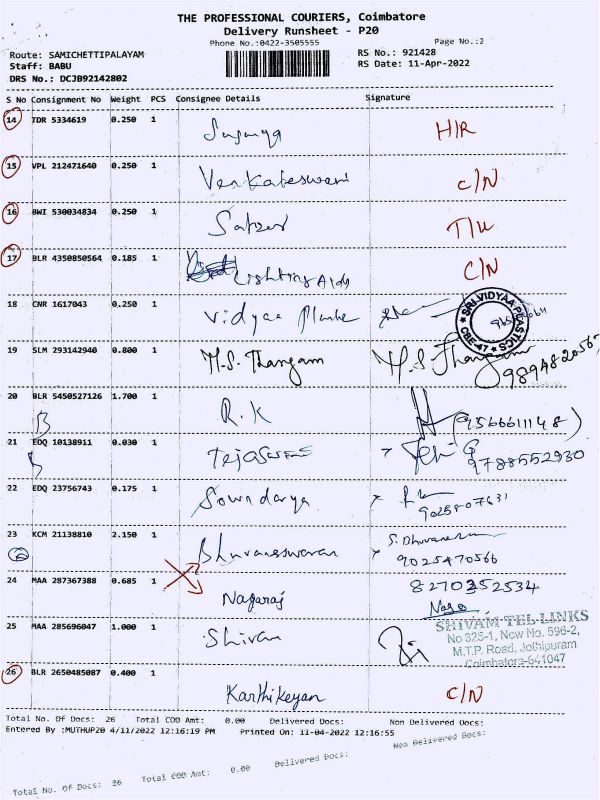 THE PROFESSIONAL COURIERS, Coimbatore
Delivery Runsheet - P20
Phone No.:0422-3505555
Page No.:2
Route: SAMICHETTIPALAYAM
RS No.: 921428
Staff: BABU
RS Date: 11-Apr-2022
DRS No.: DCJB92142802
S No Consignment No Weight PCS Consignee Details Signature
14 TDR 5334619 0.250 1 H/R
15 VPL 212471640 0.250 1 Venkateswari C/N
16 BWI 530034834 0.250 1
17 BLR 4350850564 0.185 1 Lishting Aids C/N
18 CNR 1617043 0.250 1 Vidyaa
SRI VIDYAA PLASTICS
CBE-47
19 SLM 293142940 0.800 1 M.S. Thangam M.S Thangam
20 BLR 5450527126 1.700 1 R.K (9566611148)
21 EDQ 10138911 0.030 1
9788552930
22 EDQ 23756743 0.175 1 Sowndarya
23 KCM 21138810 2.150 1 Bhuvaneswaran
9025470566
24 MAA 287367388 0.685 1 Nagaraj 8270352534
25 MAA 285696047 1.000 1 Shivan
SHIVAM TEL LINKS
No 325-1, New No. 596-2,
M.T.P. Road, Jothipuram
Coimbatore-641047
26 BLR 2650485087 0.400 1 Karthikeyan C/N
Total No. Of Docs: 26 Total COD Amt: 0.00 Delivered Docs: Non Delivered Docs:
Entered By :MUTHUP20 4/11/2022 12:16:19 PM Printed On: 11-04-2022 12:16:55
Total No. Of Docs: 26 Total COD Amt: 0.00 Delivered Docs: Non Delivered Docs: